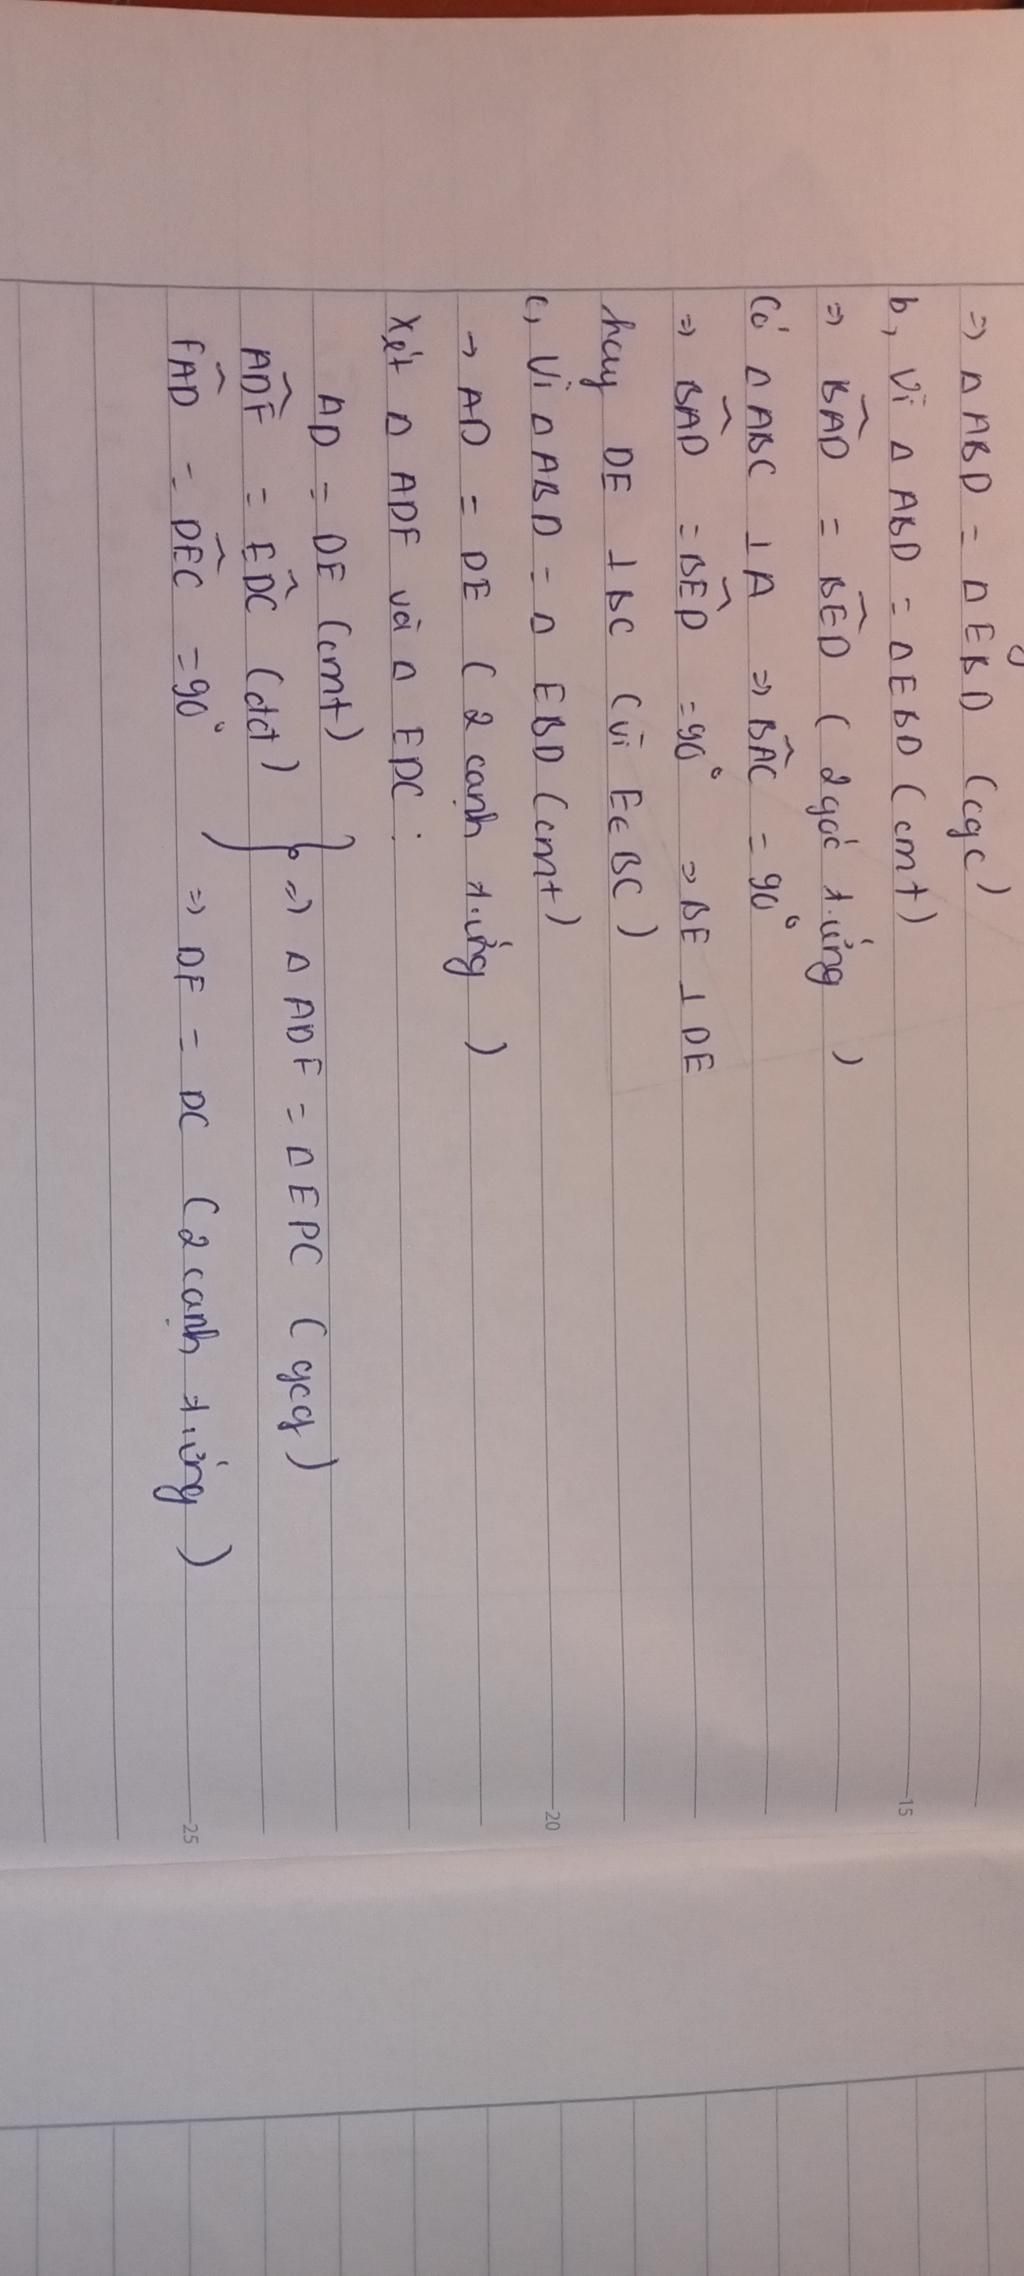 => Δ ABD = Δ EBD (cgc)
15
b, Vì Δ ABD = Δ EBD (cmt)
=> BÂD = BÊD (2 góc t.ứng)
Có Δ ABC ⊥ A => BÂC = 90°
=> BÂD = BÊD = 90° => BE ⊥ DE
hay DE ⊥ BC (vì E∈BC)
20
c, Vì Δ ABD = Δ EBD (cmt)
→ AD = DE (2 cạnh t.ứng)
Xét Δ ADF và Δ EDC:
AD = DE (cmt)
AD̂F = ED̂C (đđ) } => Δ ADF = Δ EDC (gcg)
25
FÂD = DÊC = 90° => DF = DC (2 cạnh t.ứng)